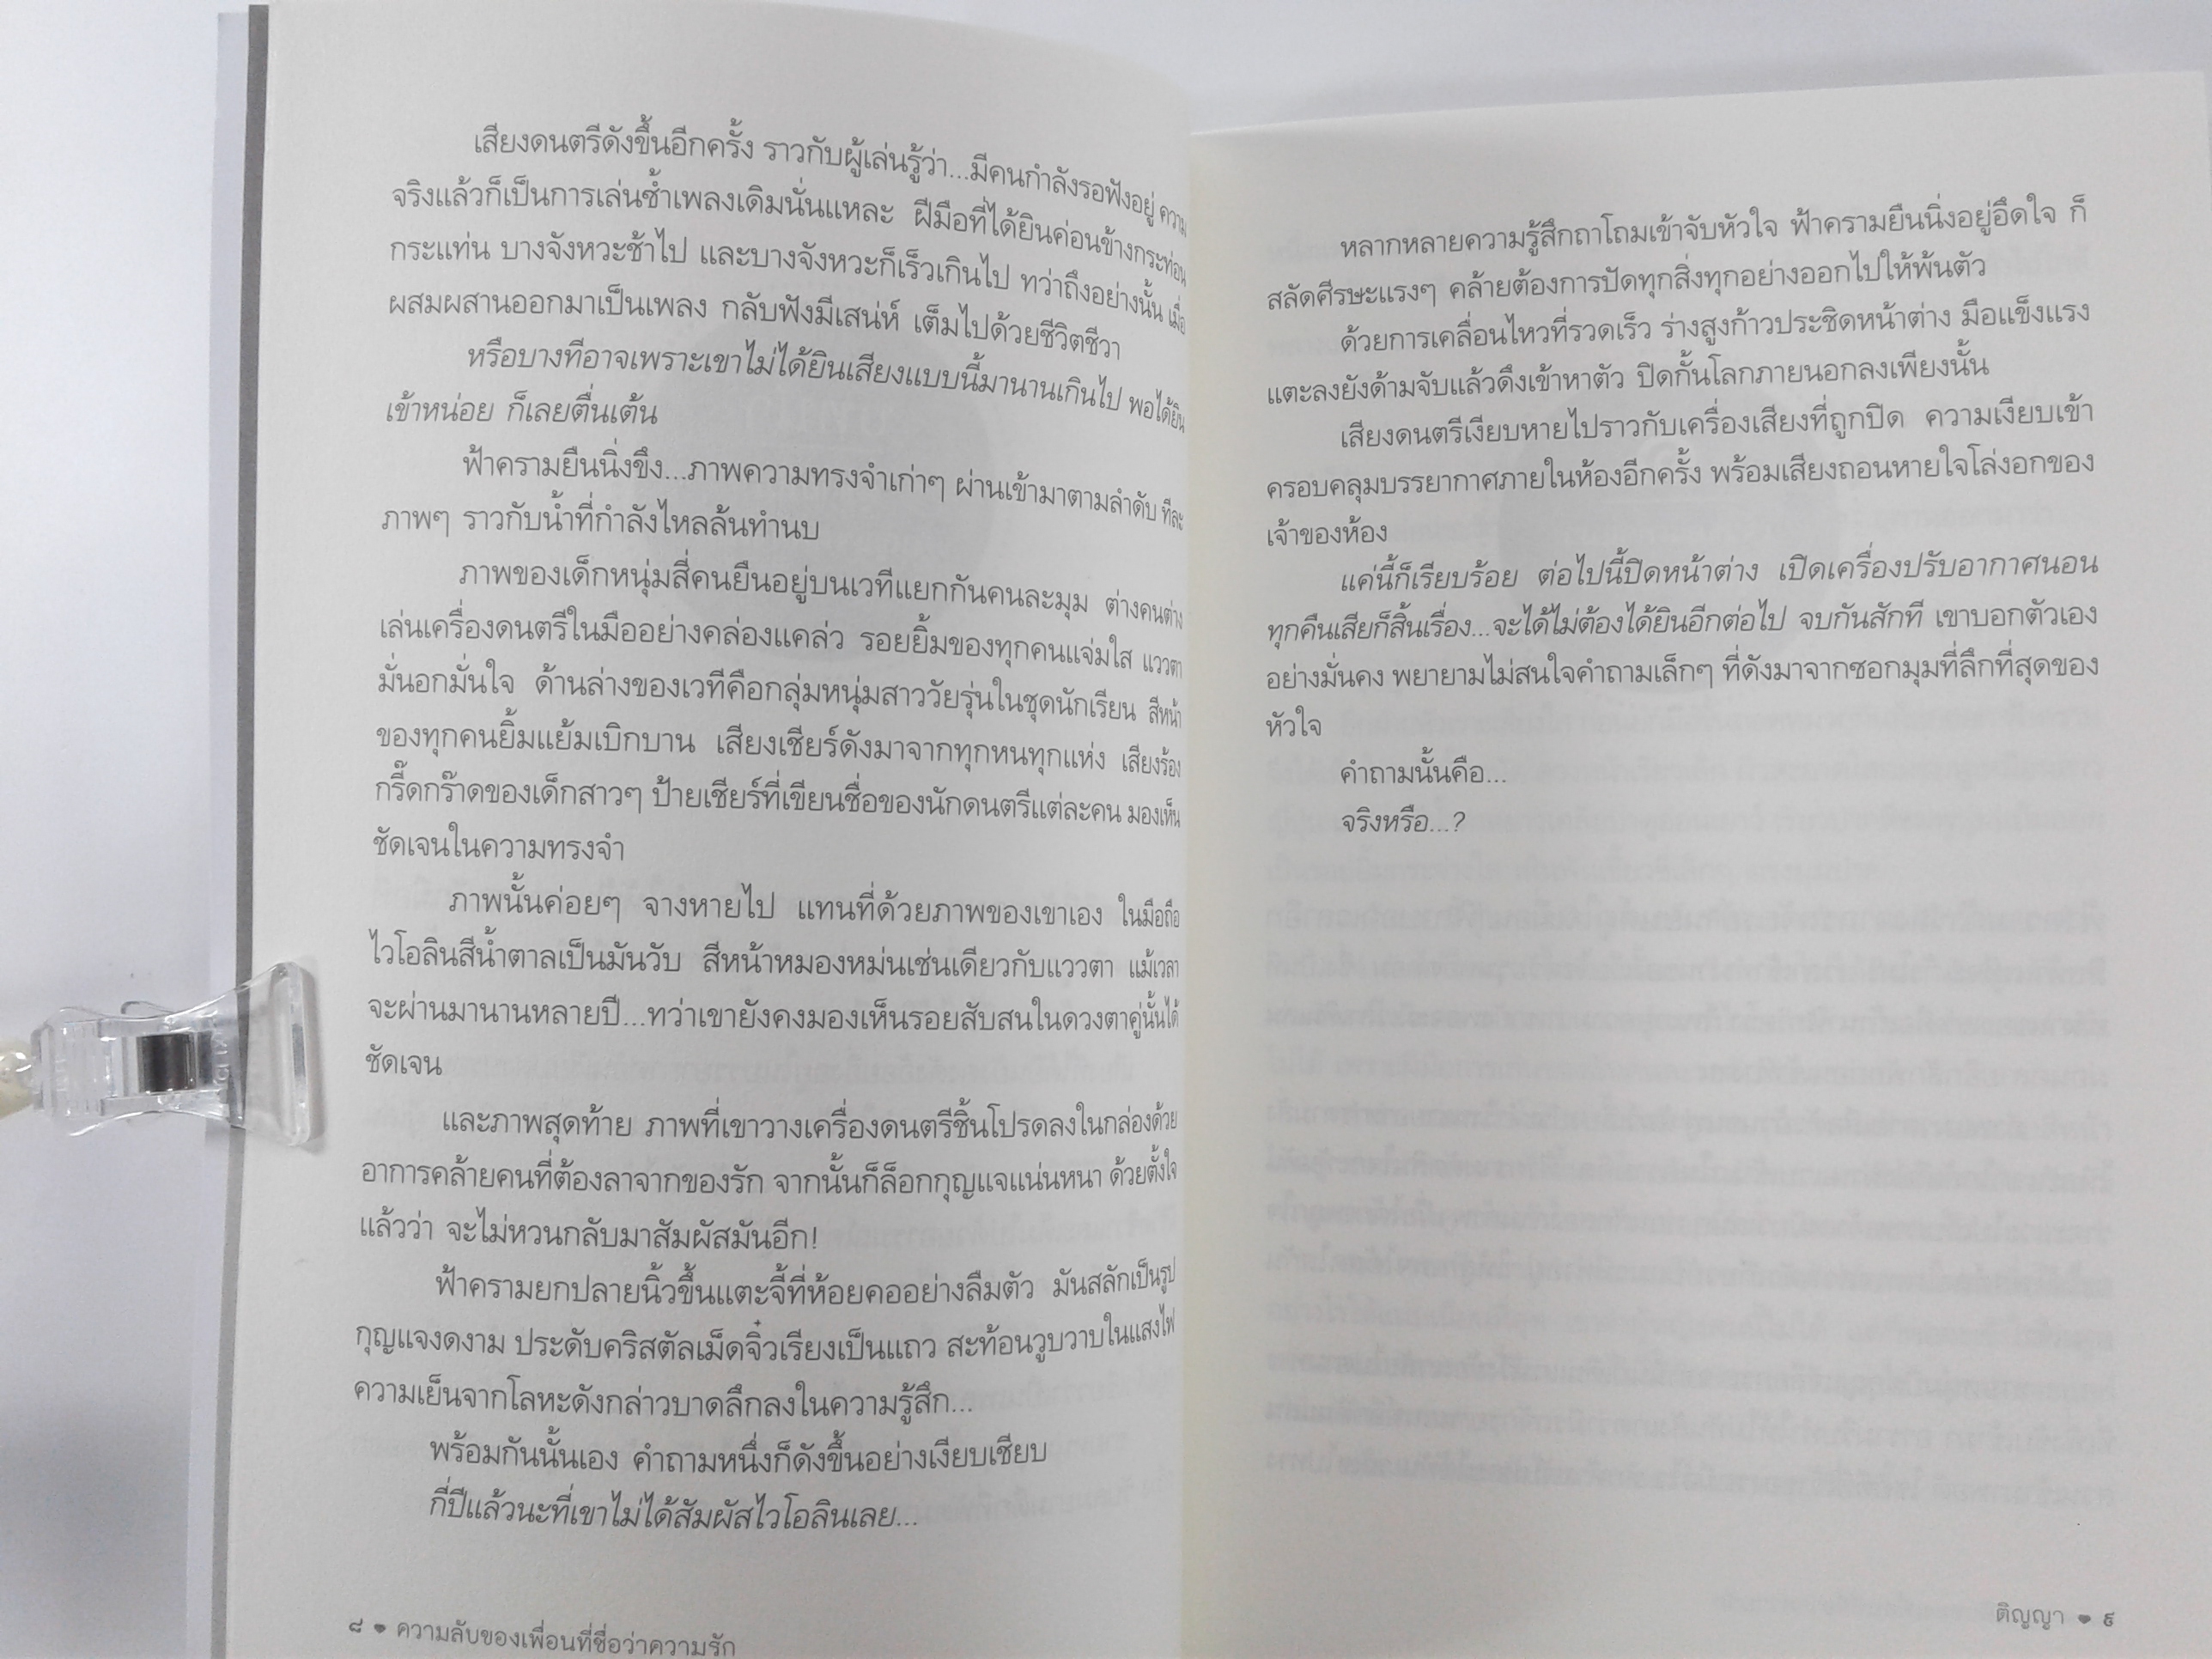 เสียงดนตรีดังขึ้นอีกครั้ง ราวกับผู้เล่นรู้ว่า...มีคนกำลังรอฟังอยู่ ความ
จริงแล้วก็เป็นการเล่นซ้ำเพลงเดิมนั่นแหละ ฝีมือที่ได้ยินค่อนข้างกระท่อน
กระแท่น บางจังหวะช้าไป และบางจังหวะก็เร็วเกินไป ทว่าถึงอย่างนั้น เมื่อ
ผสมผสานออกมาเป็นเพลง กลับฟังมีเสน่ห์ เต็มไปด้วยชีวิตชีวา
หรือบางทีอาจเพราะเขาไม่ได้ยินเสียงแบบนี้มานานเกินไป พอได้ยิน
เข้าหน่อย ก็เลยตื่นเต้น
ฟ้าครามยืนนิ่งขึง...ภาพความทรงจำเก่าๆ ผ่านเข้ามาตามลำดับ ทีละ
ภาพๆ ราวกับน้ำที่กำลังไหลล้นทำนบ
ภาพของเด็กหนุ่มสี่คนยืนอยู่บนเวทีแยกกันคนละมุม ต่างคนต่าง
เล่นเครื่องดนตรีในมืออย่างคล่องแคล่ว รอยยิ้มของทุกคนแจ่มใส แววตา
มั่นอกมั่นใจ ด้านล่างของเวทีคือกลุ่มหนุ่มสาววัยรุ่นในชุดนักเรียน สีหน้า
ของทุกคนยิ้มแย้มเบิกบาน เสียงเชียร์ดังมาจากทุกหนทุกแห่ง เสียงร้อง
กรี๊ดกร๊าดของเด็กสาวๆ ป้ายเชียร์ที่เขียนชื่อของนักดนตรีแต่ละคน มองเห็น
ชัดเจนในความทรงจำ
ภาพนั้นค่อยๆ จางหายไป แทนที่ด้วยภาพของเขาเอง ในมือถือ
ไวโอลินสีน้ำตาลเป็นมันวับ สีหน้าหมองหม่นเช่นเดียวกับแววตา แม้เวลา
จะผ่านมานานหลายปี...ทว่าเขายังคงมองเห็นรอยสับสนในดวงตาคู่นั้นได้
ชัดเจน
และภาพสุดท้าย ภาพที่เขาวางเครื่องดนตรีชิ้นโปรดลงในกล่องด้วย
อาการคล้ายคนที่ต้องลาจากของรัก จากนั้นก็ล็อกกุญแจแน่นหนา ด้วยตั้งใจ
แล้วว่า จะไม่หวนกลับมาสัมผัสมันอีก!
ฟ้าครามยกปลายนิ้วขึ้นแตะจี้ที่ห้อยคออย่างลืมตัว มันสลักเป็นรูป
กุญแจงดงาม ประดับคริสตัลเม็ดจิ๋วเรียงเป็นแถว สะท้อนวูบวาบในแสงไฟ
ความเย็นจากโลหะดังกล่าวบาดลึกลงในความรู้สึก...
พร้อมกันนั้นเอง คำถามหนึ่งก็ดังขึ้นอย่างเงียบเชียบ
กี่ปีแล้วนะที่เขาไม่ได้สัมผัสไวโอลินเลย...
๘ ความลับของเพื่อนที่ชื่อว่าความรัก
หลากหลายความรู้สึกถาโถมเข้าจับหัวใจ ฟ้าครามยืนนิ่งอยู่อึดใจ ก็
สลัดศีรษะแรงๆ คล้ายต้องการปัดทุกสิ่งทุกอย่างออกไปให้พ้นตัว
ด้วยการเคลื่อนไหวที่รวดเร็ว ร่างสูงก้าวประชิดหน้าต่าง มือแข็งแรง
แตะลงยังด้ามจับแล้วดึงเข้าหาตัว ปิดกั้นโลกภายนอกลงเพียงนั้น
เสียงดนตรีเงียบหายไปราวกับเครื่องเสียงที่ถูกปิด ความเงียบเข้า
ครอบคลุมบรรยากาศภายในห้องอีกครั้ง พร้อมเสียงถอนหายใจโล่งอกของ
เจ้าของห้อง
แค่นี้ก็เรียบร้อย ต่อไปนี้ปิดหน้าต่าง เปิดเครื่องปรับอากาศนอน
ทุกคืนเสียก็สิ้นเรื่อง...จะได้ไม่ต้องได้ยินอีกต่อไป จบกันสักที เขาบอกตัวเอง
อย่างมั่นคง พยายามไม่สนใจคำถามเล็กๆ ที่ดังมาจากซอกมุมที่ลึกที่สุดของ
หัวใจ
คำถามนั้นคือ...
จริงหรือ...?
ติญญา ๙